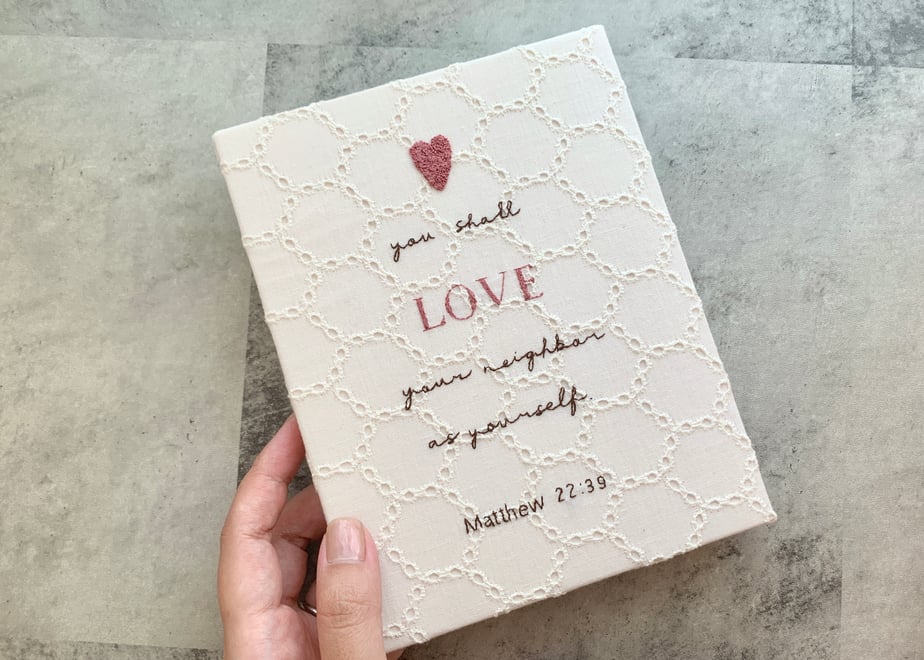 you shall
LOVE
your neighbor
as yourself.
Matthew 22:39